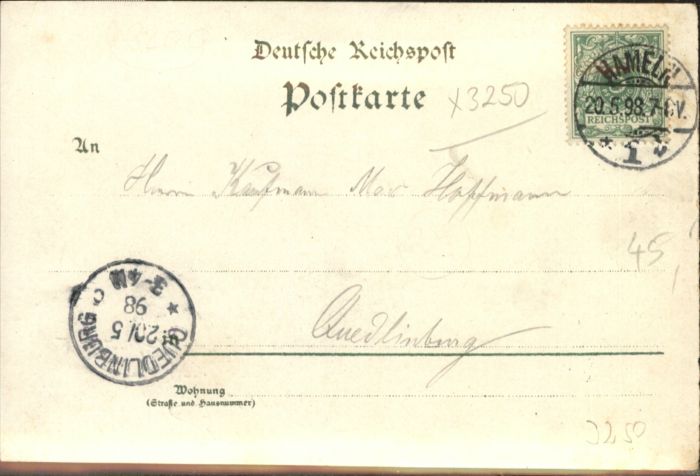 Deutsche Reichspost
Postkarte
x3250
HAMELN
20.5.98.7-8V.
* 1 *
REICHSPOST
An
Herrn Kaufmann Max Hoffmann
45,
QUEDLINBURG
20/5
98
3-4N
* c
Quedlinburg
Wohnung
(Straße und Hausnummer)
3250